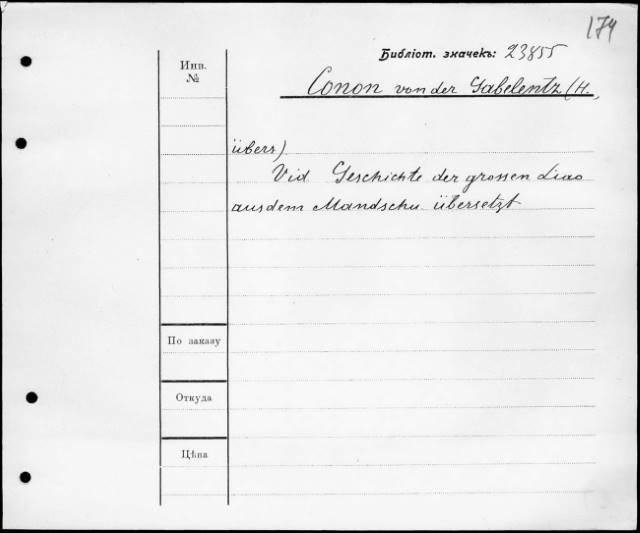 174
Библіот. значекъ: 23855
Инв.
№
Conon von der Gabelentz (H.,
übers)
Vid Geschichte der grossen Liao
aus dem Mandschu übersetzt
По заказу
Откуда
Цѣна